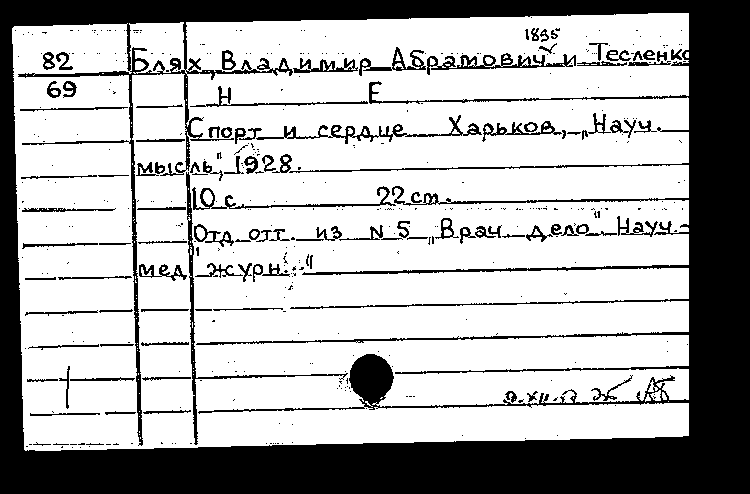 1895
82 Блях, Владимир Абрамович и Тесленко
69 Н Е
Спорт и сердце Харьков, „Науч.
мысль", 1928.
10 с. 22 cm.
Отд. отт. из N 5 „Врач. дело". Науч.-
мед. "журн..."